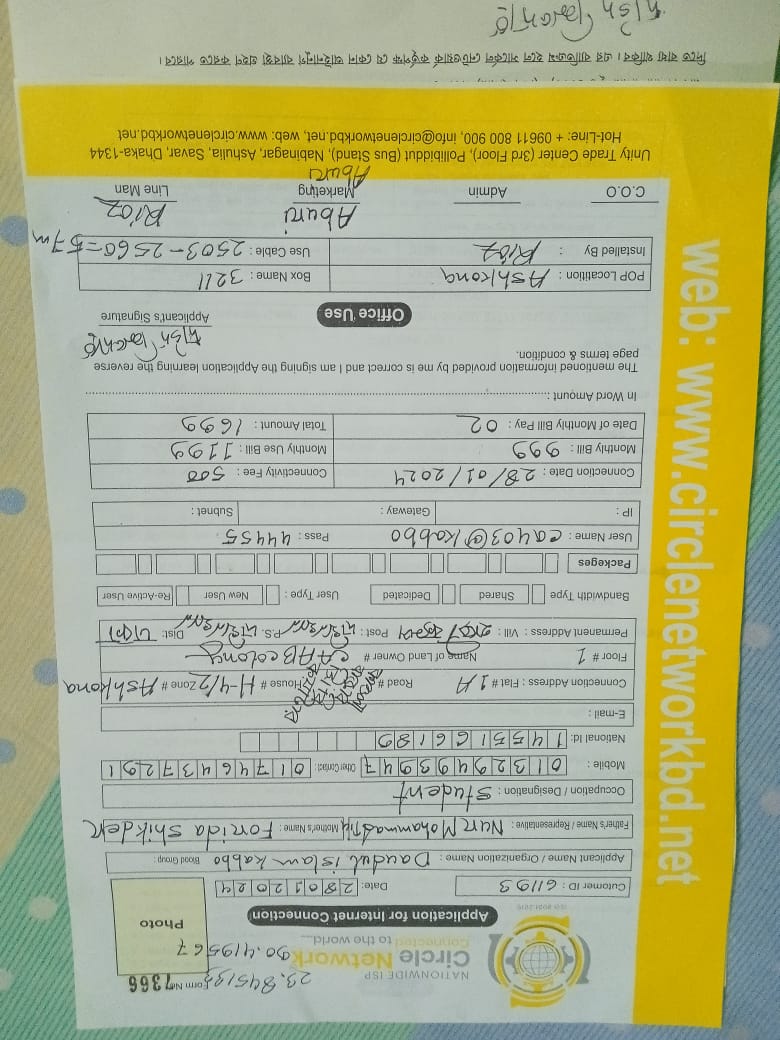 NATIONWIDE ISP
Circle Network
Connected to the world....
ISO 9001:2015
23.845135
90.419567
Form No: 7366
Photo
Application for Internet Connection
Cutomer ID : 61193 Date: 28012024
Applicant Name / Organization Name : Daudul islam kabbo Blood Group :
Father's Name / Representative : Nur Mohammad Mother's Name : Forida Shikder
Occupation / Designation : Student
Mobile : 01329493947 Other Contact: 01746437291
National Id: 1455166189
E-mail :
Connection Address : Flat # 1A Road # House # H-4/2 Zone # Ashkona
Floor # 1 Name of Land Owner # CAAB colony
Permanent Address : Vill : Post : P.S. Dist:
Bandwidth Type Shared Dedicated User Type : New User Re-Active User
Packeges
User Name : ca403@kabbo Pass : 44455
IP : Gateway : Subnet :
Connection Date : 28/01/2024 Connectivity Fee : 500
Monthly Bill : 999 Monthly Use Bill : 1199
Date of Monthly Bill Pay : 02 Total Amount : 1699
In Word Amount :
The mentioned information provided by me is correct and I am signing the Application learning the reverse
page terms & condition.
Applicant's Signature
Office Use
POP Locatition : Ashkona Box Name : 3211
Installed By : Rioz Use Cable : 2503-2560=57m
Aburi Rioz
C.O.O Admin Marketing Line Man
Aburi
Unity Trade Center (3rd Floor), Pollibidput (Bus Stand), Nabinagar, Ashulia, Savar, Dhaka-1344
Hot-Line: + 09611 800 900, info@circlenetworkbd.net, web: www.circlenetworkbd.net
web: www.circlenetworkbd.net
দিতে বাধ্য থাকিব। এর ব্যতিক্রম হলে সার্কেল নেটওয়ার্ক কর্তৃপক্ষ যে কোন আইনানুগ ব্যবস্থা গ্রহণ করতে পারবে।